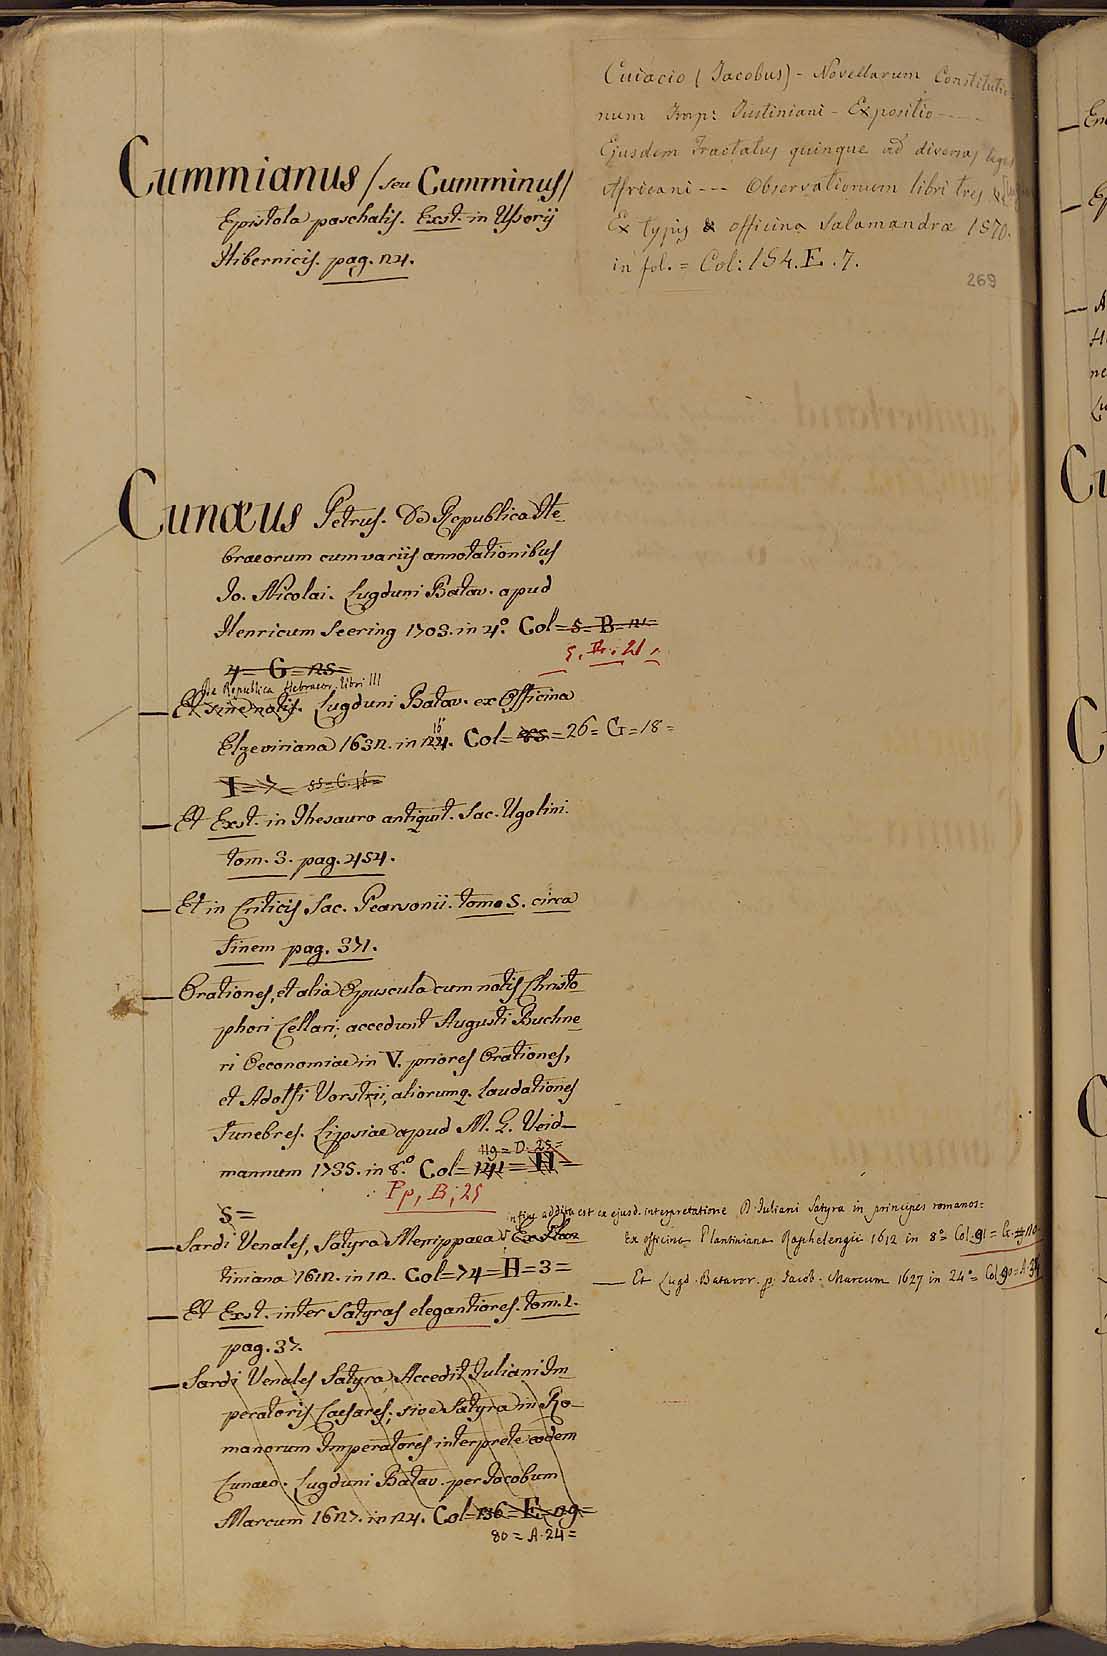 Cuiacio (Jacobus) - Novellarum Constitutio
num Imp: Justiniani - Expositio
Ejusdem Tractatus quinque ad diversas leges
Africani --- Observationum libri tres
Ex typis & officina Salamandræ 1570.
in fol. = Col: 154. E. 7.
269
Cummianus / seu Cumminus /
Epistola paschalis. Exst. in Usserij
Hibernicis. pag. 24.
Cunæus Petrus. De Republica He
braeorum cum variis annotationibus
Jo. Nicolai. Lugduni Batav. apud
Henricum Seering 1703. in 4.º Col= 5= B= 21=
21
4= G= 25=
De Republica Hebraeor. libri III
Et sine notis. Lugduni Batav. ex Officina
Elzeviriana 1632. in 24. Col= = 26= G= 18=
I= 7= 55= C. 16=
Et Exst. in Thesauro antiquit. Sac. Ugolini.
tom. 3. pag. 454.
Et in Criticis Sac. Pearsonii. tomo 5. circa
finem pag. 371.
Orationes, et alia Opuscula cum notis Christo
phori Cellari; accedunt Augusti Buchne
ri Oeconomiae in V. priores Orationes,
et Adolfi Vorstii, aliorumq. laudationes
funebres. Lipsiae apud M. G. Veid-
119= D. 25=
mannum 1735. in 8.º Col= 141= H=
Pp, B; 25
5=
in fine addita est ex ejusd. interpretatione D. Juliani Satyra in principes romanos=
Sardi Venales, Satyra Menippaea Ex Plan
Ex officina Plantiniana Raphelengii 1612 in 8º= Col. 91= G= 110
tiniana 1612. in 12. Col= 74= H= 3=
Et Lugd. Batavor. p. Jacob. Marcum 1627 in 24º= Col. 90= A. 34
Et Exst. inter Satyras elegantiores. tom. 1.
pag. 37.
Sardi Venales Satyra, Accedit Juliani Im
peratoris Caesares; sive Satyra in Ro-
manorum Imperatores interprete eodem
Cunaeo. Lugduni Batav. per Jacobum
Marcum 1627. in 24. Col= 136= E= 29=
80= A. 24=